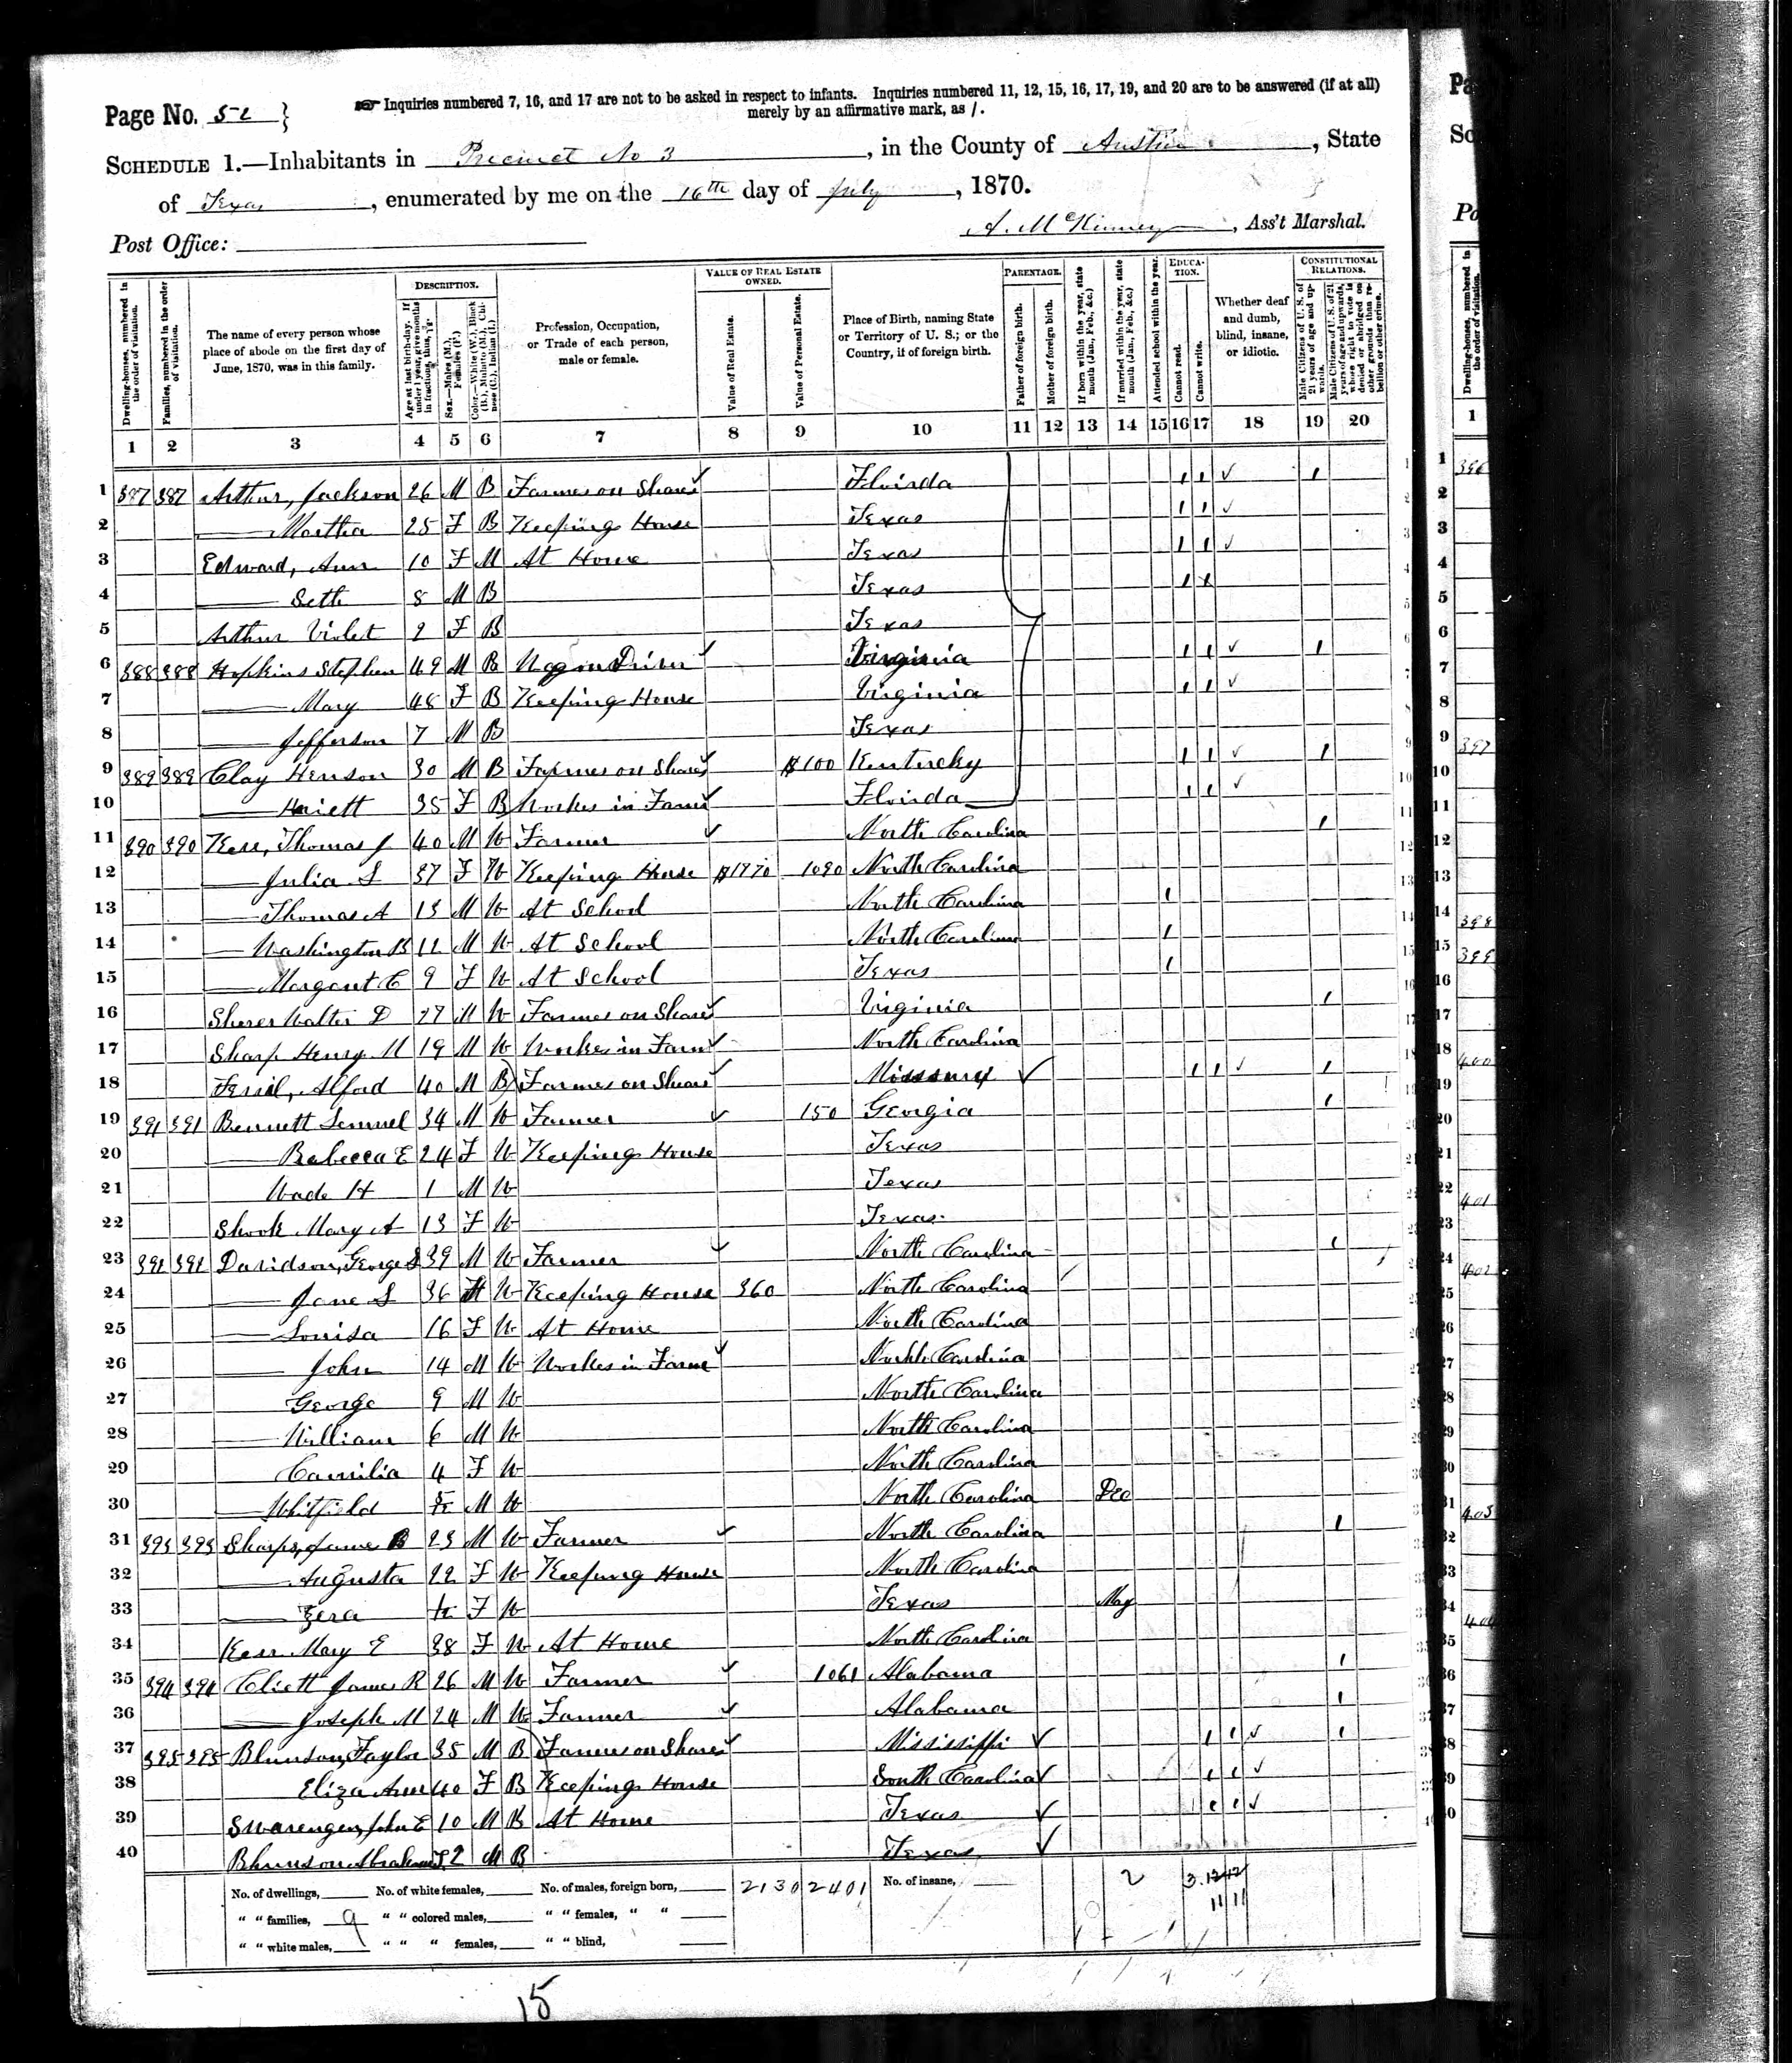 Page No. 52 }
Inquiries numbered 7, 16, and 17 are not to be asked in respect to infants. Inquiries numbered 11, 12, 15, 16, 17, 19, and 20 are to be answered (if at all)
merely by an affirmative mark, as /.
SCHEDULE 1.—Inhabitants in Precinct No 3, in the County of Austin, State
of Texas, enumerated by me on the 16th day of July, 1870.
Post Office:
A. McKinney, Ass't Marshal.
Dwelling-houses, numbered in the order of visitation.
Families, numbered in the order of visitation.
The name of every person whose place of abode on the first day of June, 1870, was in this family.
DESCRIPTION.
Age at last birth-day. If under 1 year, give months in fractions, thus,
Sex.—Males (M.), Females (F.)
Color.—White (W.), Black (B.), Mulatto (M.), Chinese (C.), Indian (I.)
Profession, Occupation, or Trade of each person, male or female.
VALUE OF REAL ESTATE OWNED.
Value of Real Estate.
Value of Personal Estate.
Place of Birth, naming State or Territory of U. S.; or the Country, if of foreign birth.
PARENTAGE.
Father of foreign birth.
Mother of foreign birth.
If born within the year, state month (Jan., Feb., &c.)
If married within the year, state month (Jan., Feb., &c.)
Attended school within the year.
EDUCATION.
Cannot read.
Cannot write.
Whether deaf and dumb, blind, insane, or idiotic.
CONSTITUTIONAL RELATIONS.
Male Citizens of U. S. of 21 years of age and upwards.
Male Citizens of U. S. of 21 years of age and upwards, whose right to vote is denied or abridged on other grounds than rebellion or other crime.
1 2 3 4 5 6 7 8 9 10 11 12 13 14 15 16 17 18 19 20
1 387 387 Arthur, Jackson 26 M B Farmer on Shares Florida 1 1 1
2 — Martha 25 F B Keeping House Texas 1 1
3 Edward, Ann 10 F M At Home Texas 1 1
4 — Seth 8 M B Texas 1
5 Arthur Violet 2 F B Texas
6 388 388 Hopkins Stephen 49 M B Virginia 1 1 1
7 — Mary 48 F B Keeping House Virginia 1 1
8 — Jefferson 7 M B Texas
9 389 389 Clay Henson 30 M B Farmer on Shares $100 Kentucky 1 1 1
10 — Hariett 35 F B Works in Farm Florida 1 1
11 390 390 Kerr, Thomas J 40 M W Farmer North Carolina 1
12 — Julia S 37 F W Keeping House $1770 1090 North Carolina
13 — Thomas A 15 M W At School North Carolina 1
14 — Washington B M W At School North Carolina 1
15 — Margaret C 9 F W At School Texas 1
16 Walter D 27 M W Farmer on Shares Virginia 1
17 Sharp Henry M 19 M W Works in Farm North Carolina
18 Alford 40 M B Farmer on Shares Missoury 1 1 1
19 391 391 Bennett Lemuel 34 M W Farmer 150 Georgia 1
20 — Rebecca E 24 F W Keeping House Texas
21 Wade H 1 M W Texas
22 Shook Mary A 13 F W Texas
23 391 391 Davidson, George S 39 M W Farmer North Carolina 1
24 — Jane S 36 W Keeping House 360 North Carolina
25 — Louisa 16 F W At Home North Carolina
26 — John 14 M W Works in Farm North Carolina
27 — George 9 M W North Carolina
28 — William 6 M W North Carolina
29 — Camilia 4 F W North Carolina
30 — Whitfield M W North Carolina Dec
31 393 393 Sharp, James B 23 M W Farmer North Carolina 1
32 — Augusta 22 F W Keeping House North Carolina
33 — Zera F W Texas May
34 Kerr Mary E 38 F W At Home North Carolina
35 394 394 Cliett James R 26 M W Farmer 1061 Alabama 1
36 — Joseph M 24 M W Farmer Alabama 1
37 395 395 Blunson, Taylor 35 M B Farmer on Shares Mississippi 1 1 1
38 Eliza Ann 40 F B Keeping House South Carolina 1 1
39 Swarengen, John E 10 M B At Home Texas 1 1
40 Blunson Abraham 2 M B Texas
No. of dwellings, No. of white females, No. of males, foreign born, 2130 2401 No. of insane, 2 3 12 12
" " families, 9 " " colored males, " " females, " " 11 11
" " white males, " " " females, " " blind,
15